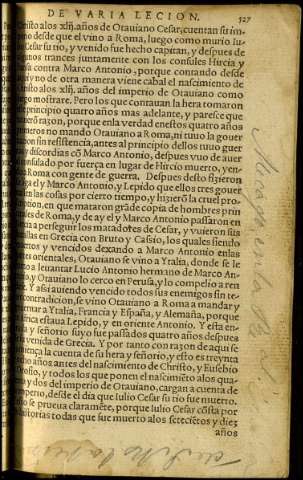 DE VARIA LECION. 327
Christo alos xlij. años de Otauiano Cesar, cuentan su im-
perio desde que el vino a Roma, luego como murio Iu-
lio Cesar su tio, y venido fue hecho capitan, y despues de
algunos trances juntamente con los consules Hircia y
Pansa contra Marco Antonio, porque contando desde
aqui y no de otra manera viene cabal el nascimiento de
Christo alos xlij. años del imperio de Otauiano como
luego mostrare. Pero los que contauan la hera tomaron
el principio quatro años mas adelante, y paresce que
tuuierõ razon, porque enla verdad enestos quatro años
primeros no mando Otauiano a Roma, ni tuuo la gouer
nacion sin resistencia, antes al principio dellos tuuo guer
ras y discordias cõ Marco Antonio, despues vuo de auer
el consulado por fuerça en lugar de Hircio muerto, ven-
do a Roma con gente de guerra. Despues desto fizieron
liga el y Marco Antonio, y Lepido que ellos tres gouer
nassen las cosas por cierto tiempo, y hizierõ la cruel pro-
scripcion, en que mataron grãde copia de hombres prin
cipales de Roma, y de ay el y Marco Antonio passaron en
Grecia a perseguir los matadores de Cesar, y vuieron sus
batallas en Grecia con Bruto y Casio, los quales siendo
muertos y vencidos dexando a Marco Antonio enlas
partes orientales, Otauiano se vino a Ytalia, donde se le
torno a leuantar Lucio Antonio hermano de Marco An-
tonio, y Otauiano lo cerco en Perusa, y lo compelio a ren
dirse. Y assi auiendo vencido todos sus enemigos sin te-
ner contradicion, se vino Otauiano a Roma a mandar y
gouernar a Ytalia, Francia y España, y Alemaña, porque
en Africa estaua Lepido, y en oriente Antonio. Y esta en-
trada y señorio suyo fue passados quatro años despues
de la venida de Grecia. Y por tanto con razon de aqui se
comiença la cuenta de su hera y señorio, y esto es treynta
y ocho años antes del nascimiento de Christo, y Eusebio
y Orosio, y todos los que ponen el nascimiẽto alos qua-
renta y dos del imperio de Otauiano, cargan a cuenta de
su imperio, desde el dia que Iulio Cesar su tio fue muerto.
Esto se prueua claramẽte, porque Iulio Cesar cõsta por
historias todas que fue muerto alos setecietos y diez
años